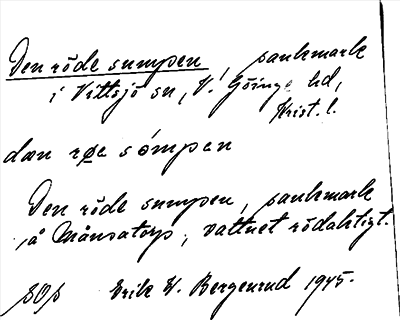 Den röde sumpen, sankmark
i Vittsjö sn, V. Göinge hd,
Krist. l.
dæn røe sómpen
Den röde sumpen, sankmark
å Månsatorp, vattnet rödaktigt.
Erik W. Bergenrud 1945.